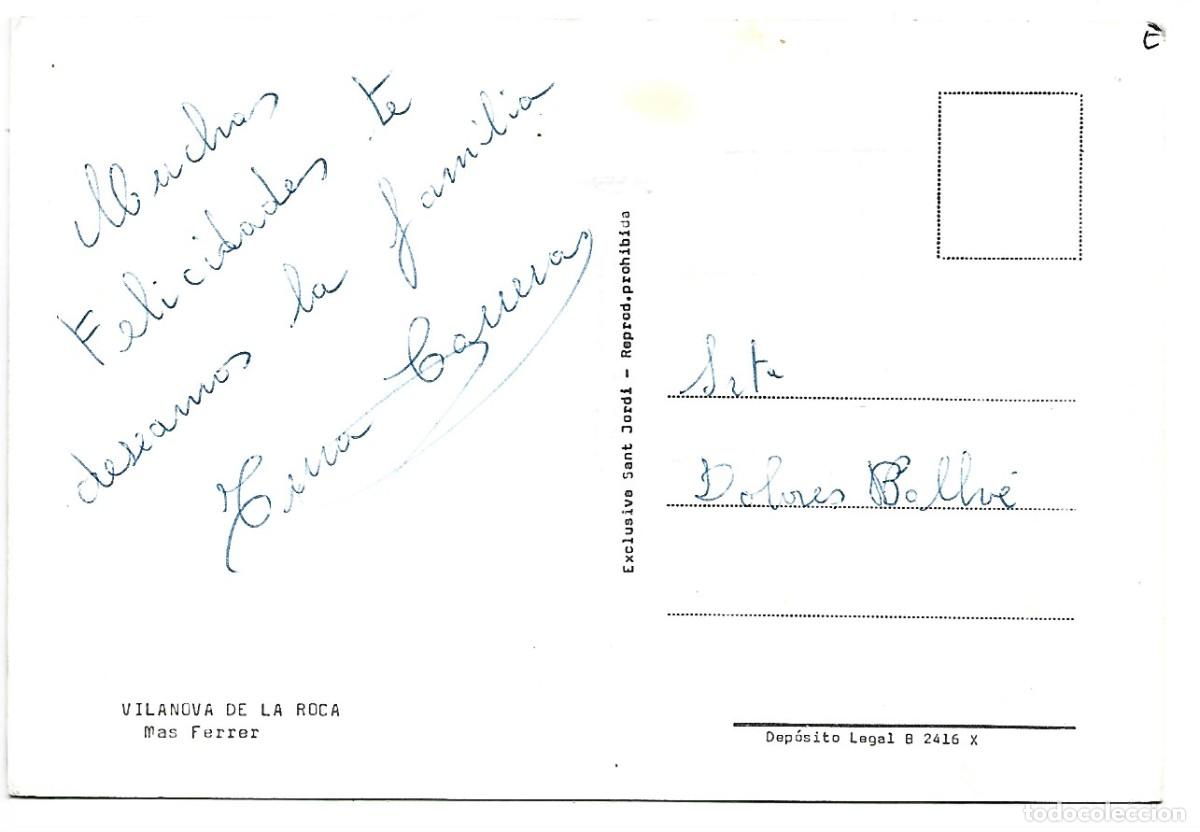 E
Muchas
Felicidades te
deseamos la familia
Carrera
Exclusive Sant Jordi - Reprod.prohibida
Srta
Dolores Ballvé
VILANOVA DE LA ROCA
Mas Ferrer
Depósito Legal B 2416 X
todocoleccion